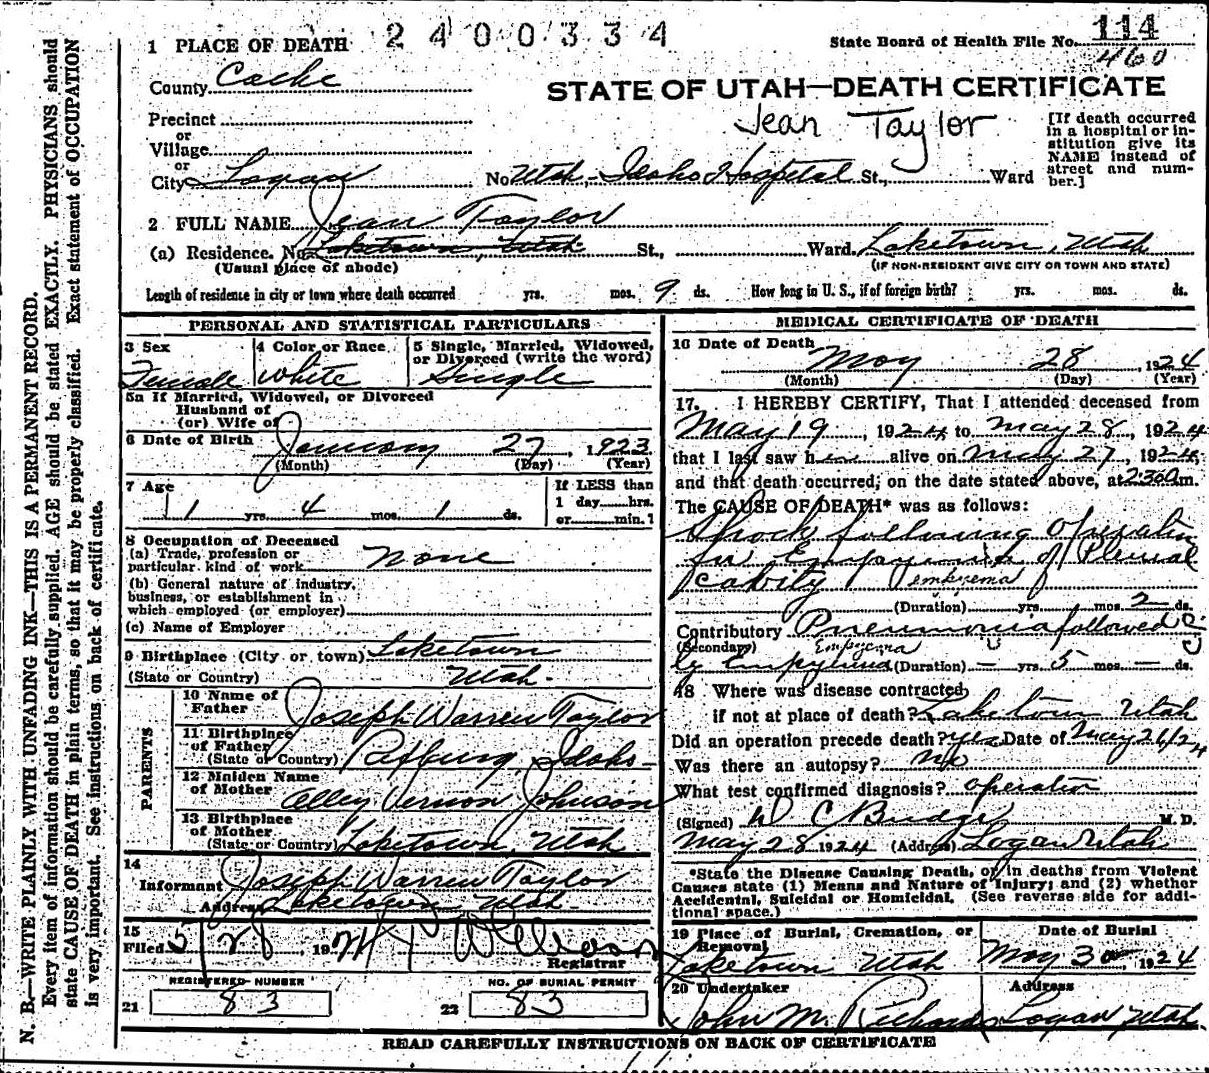 1 PLACE OF DEATH 2400334
State Board of Health File No. 114
460
County Cache
STATE OF UTAH—DEATH CERTIFICATE
Precinct
Jean Taylor
or
Village
or
City Logan No. Utah-Idaho Hospital St., Ward
[If death occurred
in a hospital or in-
stitution give its
NAME instead of
street and num-
ber.]
2 FULL NAME Jean Taylor
(a) Residence. No. Laketown, Utah St., Ward. Laketown, Utah
(Usual place of abode) (IF NON-RESIDENT GIVE CITY OR TOWN AND STATE)
Length of residence in city or town where death occurred yrs. mos. 9 ds. How long in U. S., if of foreign birth? yrs. mos. ds.
PERSONAL AND STATISTICAL PARTICULARS
3 Sex 4 Color or Race 5 Single, Married, Widowed,
or Divorced (write the word)
Female White Single
5a If Married, Widowed, or Divorced
Husband of
(or) Wife of
6 Date of Birth January 27, 1923
(Month) (Day) (Year)
7 Age If LESS than
1 day hrs.
1 yrs. 4 mos. 1 ds. or min.?
8 Occupation of Deceased
(a) Trade, profession or
particular kind of work none
(b) General nature of industry,
business, or establishment in
which employed (or employer)
(c) Name of Employer
9 Birthplace (City or town) Laketown
(State or Country) Utah.
PARENTS
10 Name of
Father Joseph Warren Taylor
11 Birthplace
of Father
(State or Country) Rexburg, Idaho
12 Maiden Name
of Mother Alley Vernon Johnson
13 Birthplace
of Mother
(State or Country) Laketown, Utah
14
Informant Joseph Warren Taylor
Address Laketown Utah.
15
Filed 5/28 1924
Registrar
REGISTERED NUMBER NO. OF BURIAL PERMIT
21 83 22 83
MEDICAL CERTIFICATE OF DEATH
16 Date of Death
May 28, 1924
(Month) (Day) (Year)
17. I HEREBY CERTIFY, That I attended deceased from
May 19, 1924 to May 28, 1924
that I last saw her alive on May 27, 1924,
and that death occurred, on the date stated above, at 2:30 a.m.
The CAUSE OF DEATH* was as follows:
Shock following operation
for Empyema of Pleural
cavity empyema
(Duration) yrs. mos. 2 ds.
Contributory Pneumonia followed
(Secondary) Empyema
by Empyema (Duration) — yrs. 5 mos. — ds.
18 Where was disease contracted
if not at place of death? Laketown Utah
Did an operation precede death? yes Date of May 26/24
Was there an autopsy? No
What test confirmed diagnosis? operation
(Signed) W C Budge M. D.
May 28 1924 (Address) Logan Utah
*State the Disease Causing Death, or in deaths from Violent
Causes state (1) Means and Nature of Injury; and (2) whether
Accidental, Suicidal or Homicidal. (See reverse side for addi-
tional space.)
19 Place of Burial, Cremation, or Date of Burial
Removal
Laketown Utah May 30, 1924
20 Undertaker Address
John M. Logan Utah.
READ CAREFULLY INSTRUCTIONS ON BACK OF CERTIFICATE
N. B.—WRITE PLAINLY WITH UNFADING INK—THIS IS A PERMANENT RECORD.
Every item of information should be carefully supplied. AGE should be stated EXACTLY. PHYSICIANS should
state CAUSE OF DEATH in plain terms, so that it may be properly classified. Exact statement of OCCUPATION
is very important. See instructions on back of certificate.